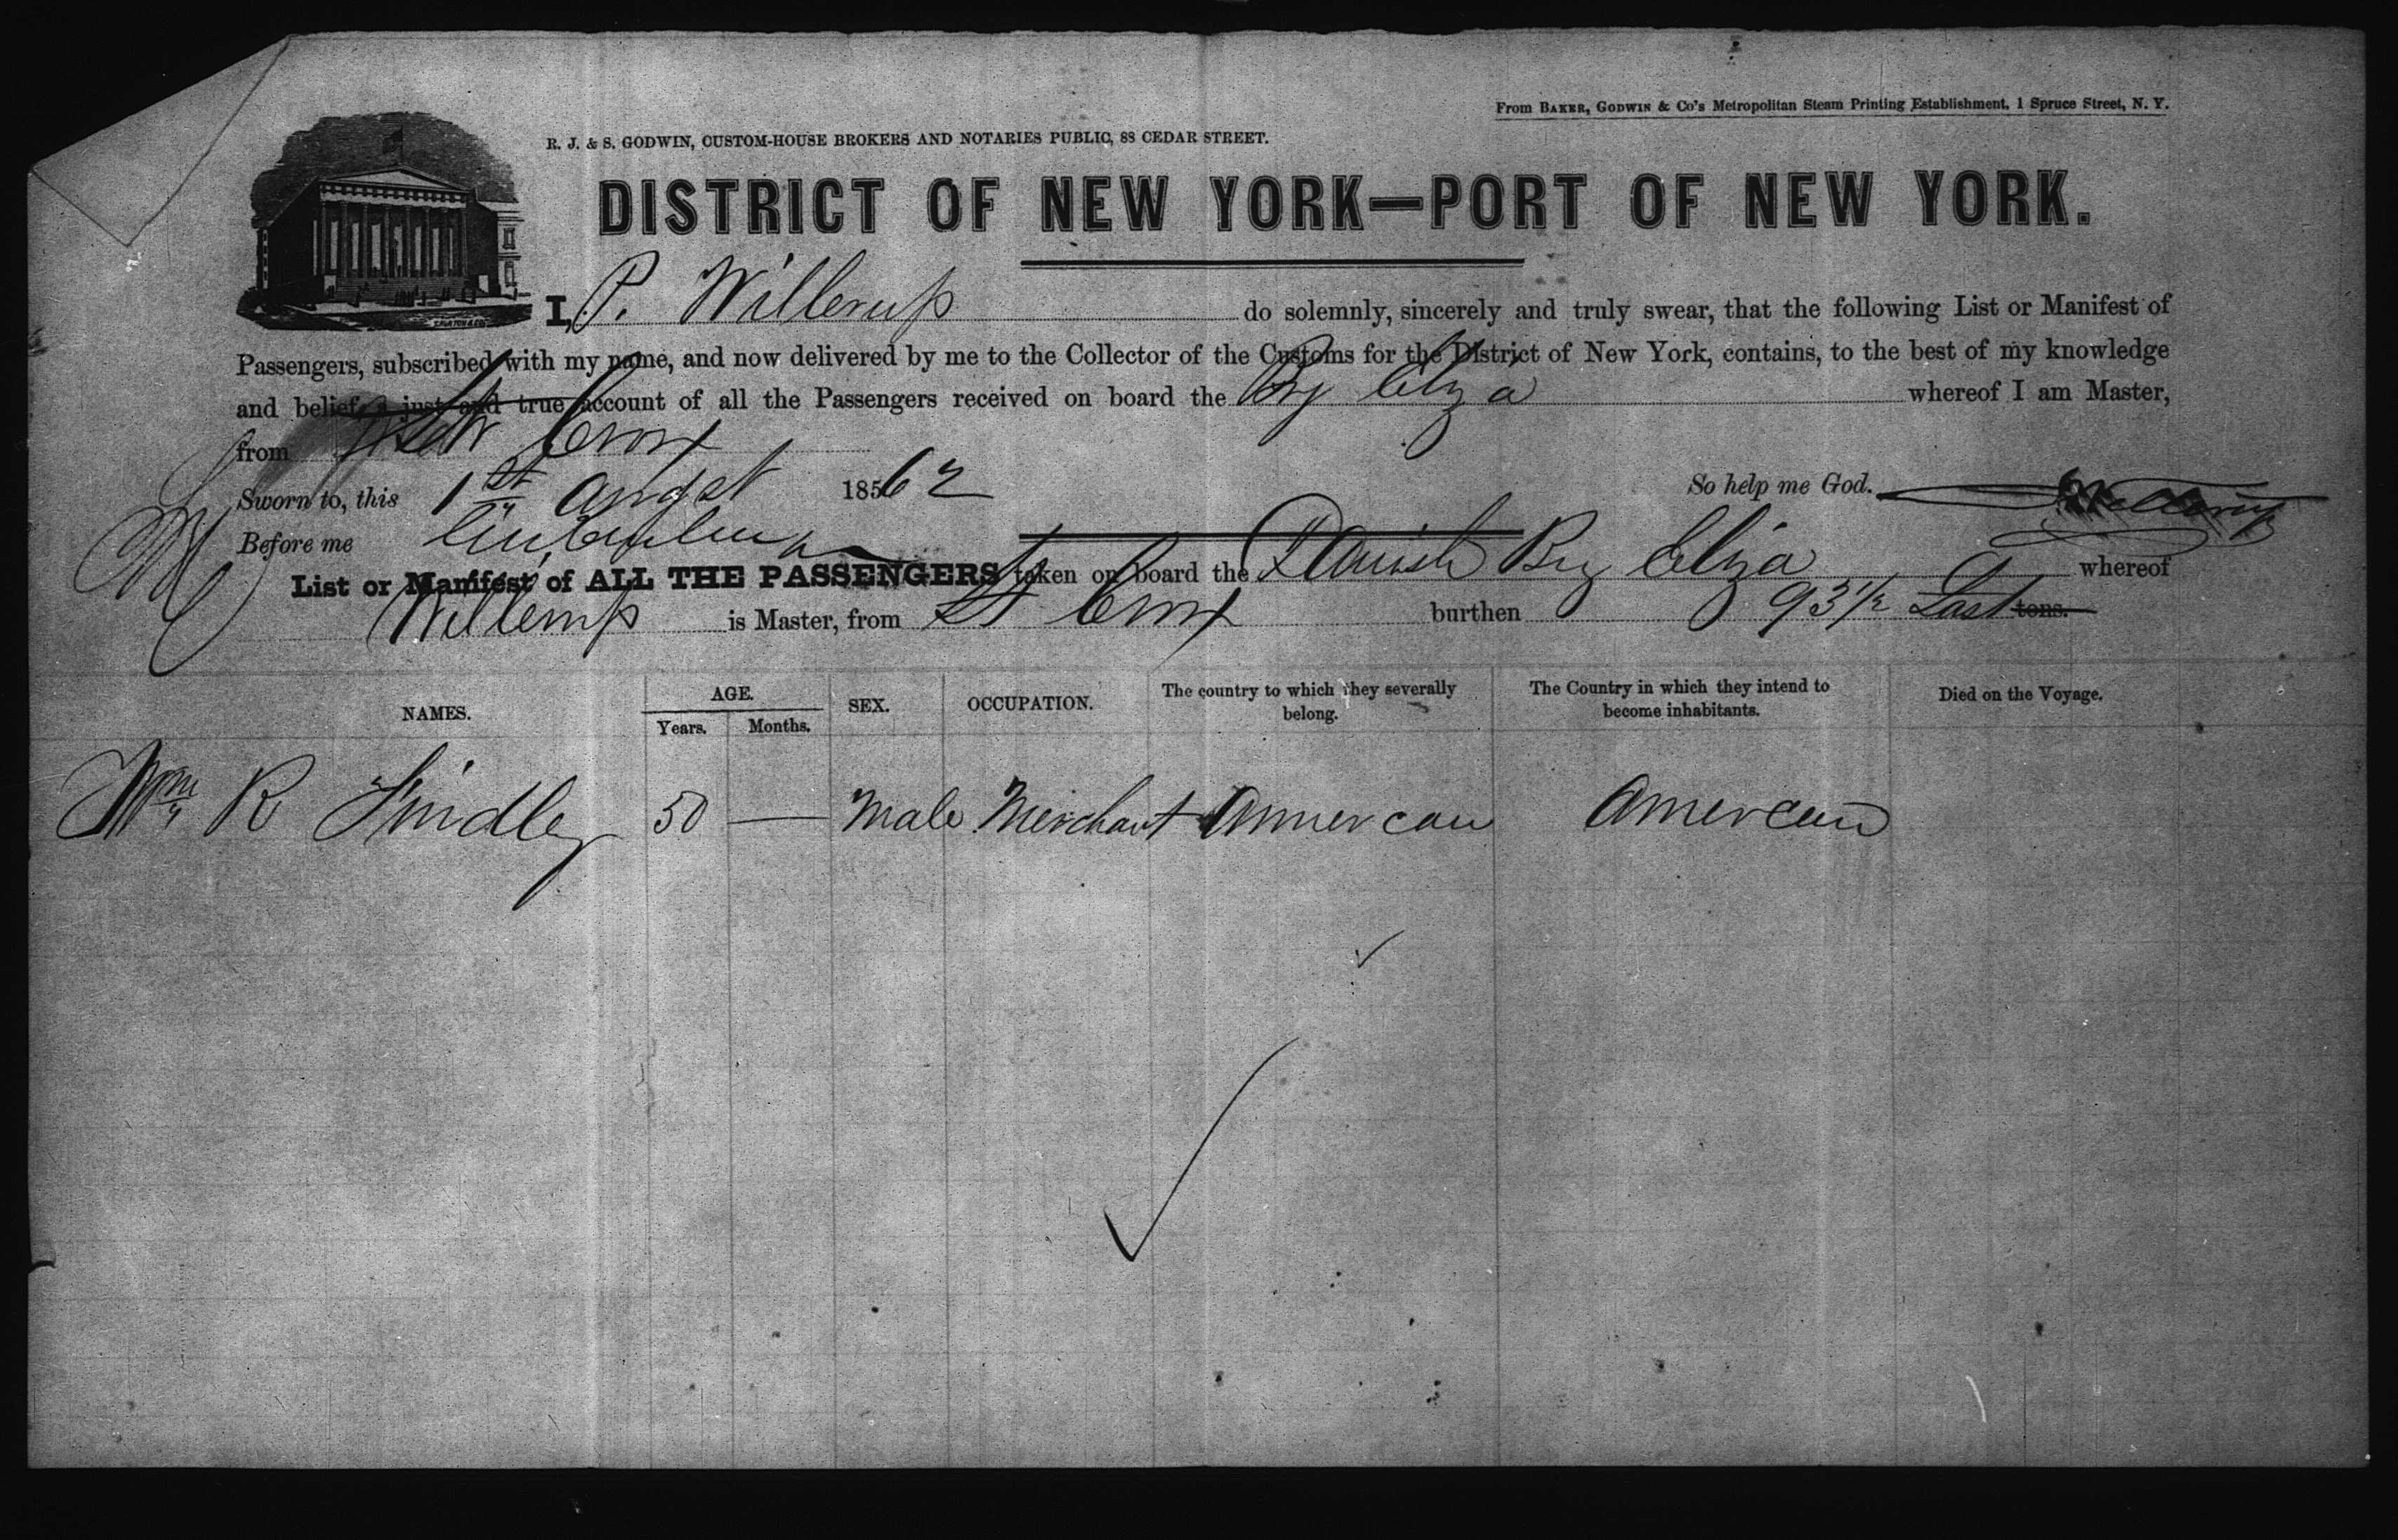 From BAKER, GODWIN & Co's Metropolitan Steam Printing Establishment, 1 Spruce Street, N. Y.
R. J. & S. GODWIN, CUSTOM-HOUSE BROKERS AND NOTARIES PUBLIC, 88 CEDAR STREET.
DISTRICT OF NEW YORK—PORT OF NEW YORK.
I, P. Willerup do solemnly, sincerely and truly swear, that the following List or Manifest of
Passengers, subscribed with my name, and now delivered by me to the Collector of the Customs for the District of New York, contains, to the best of my knowledge
and belief, a just and true account of all the Passengers received on board the Brg Eliza whereof I am Master,
from St Croix
Sworn to, this 1st Augst 1862 So help me God. Willerup
Before me
List or Manifest of ALL THE PASSENGERS taken on board the Danish Brg Eliza whereof
Willerup is Master, from St Croix burthen 93 1/2 Last tons.
NAMES. AGE. Years. Months. SEX. OCCUPATION. The country to which they severally belong. The Country in which they intend to become inhabitants. Died on the Voyage.
Wm R Findley 50 — Male Merchant Amercan Amercan